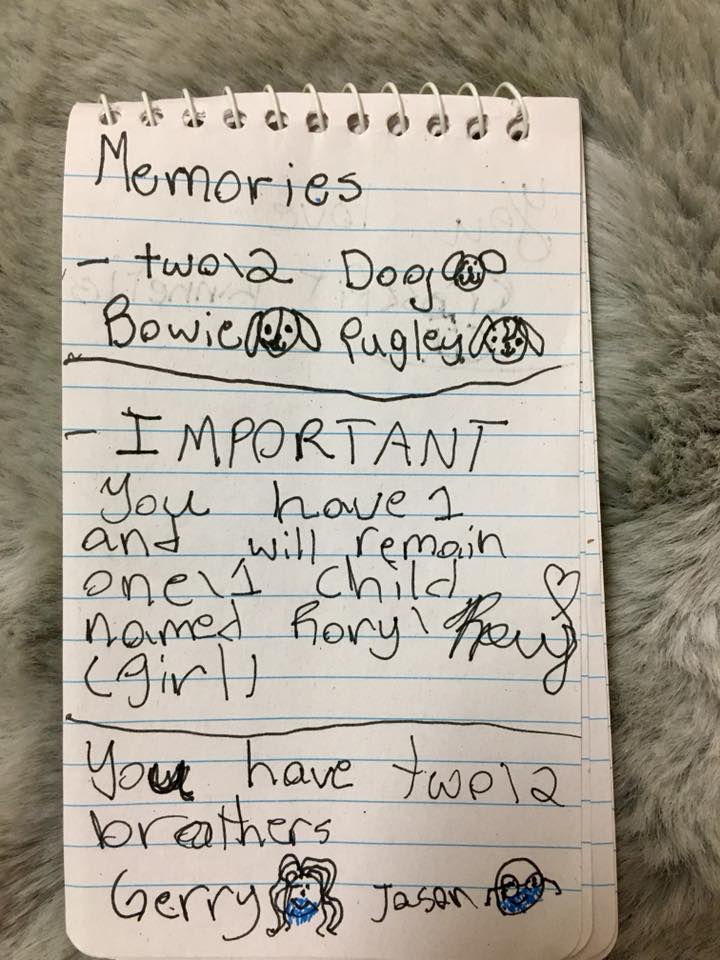 Memories
- two\2 Dog
Bowie Pugley
- IMPORTANT
You have 1
and will remain
one\1 child
named Rory\Rory
(girl)
You have two\2
breathers
Gerry Jason